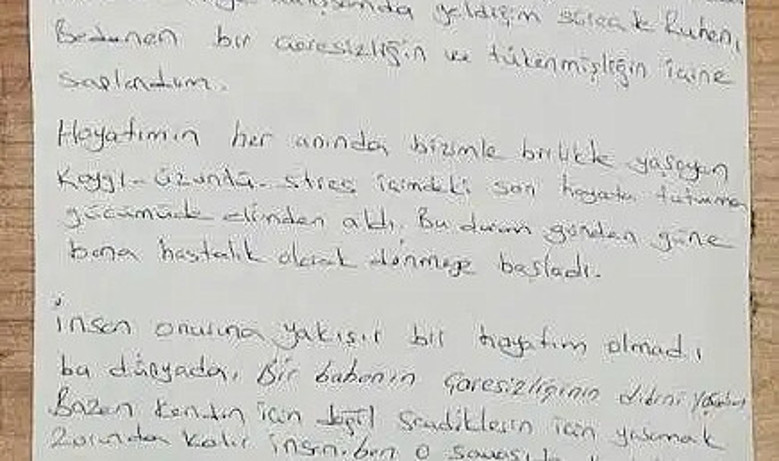 geldiğim süreçte Ruhen,
Bedenen bir çaresizliğin ve tükenmişliğin içine
saplandım.
Hayatımın her anında bizimle birlikte yaşayan
Kaygı-üzüntü-stres içimdeki son hayata tutunma
gücümüde elinden aldı. Bu durum günden güne
bana hastalık olarak dönmeye başladı.
İnsan onuruna yakışır bir hayatım olmadı
bu dünyada. Bir babanın çaresizliğinin dibini
Bazen kendin için değil sevdiklerin için yaşamak
Zorunda kalır insan. ben o